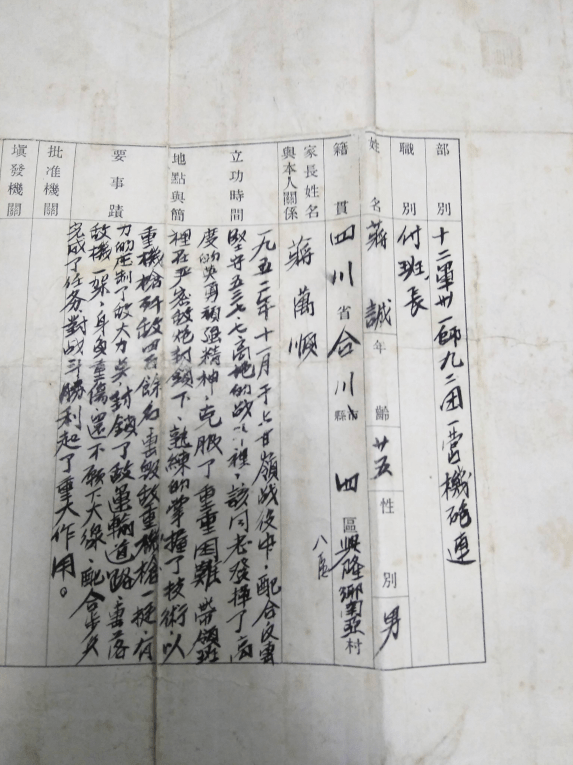 部別 十二軍卅一師九二団一营機砲連
職別 付班長
姓名 蔣誠 年齡 廿五 性別 男
籍貫 四川省合川縣市四區興隆鄉村
八區
家長姓名與本人關係 蔣萬順
立功時間地點與簡要事蹟
一九五二年十一月于上甘嶺战役中,配合友軍
堅守五三七·七高地的战斗裡,該同志發揮了高
度的英勇頑强精神,克服了重重困難,带領班
裡在严密敌炮封鎖下,熟練的掌握了技術以
重機槍歼敌四百餘名,击毁敌重機槍一挺,有
力的压制了敌火力点,封鎖了敌運輸道路,击落
敌機一架,身負重傷,還不願下火線,配合步兵
完成了任务,對战斗勝利起了重大作用。
批准機關
填發機關